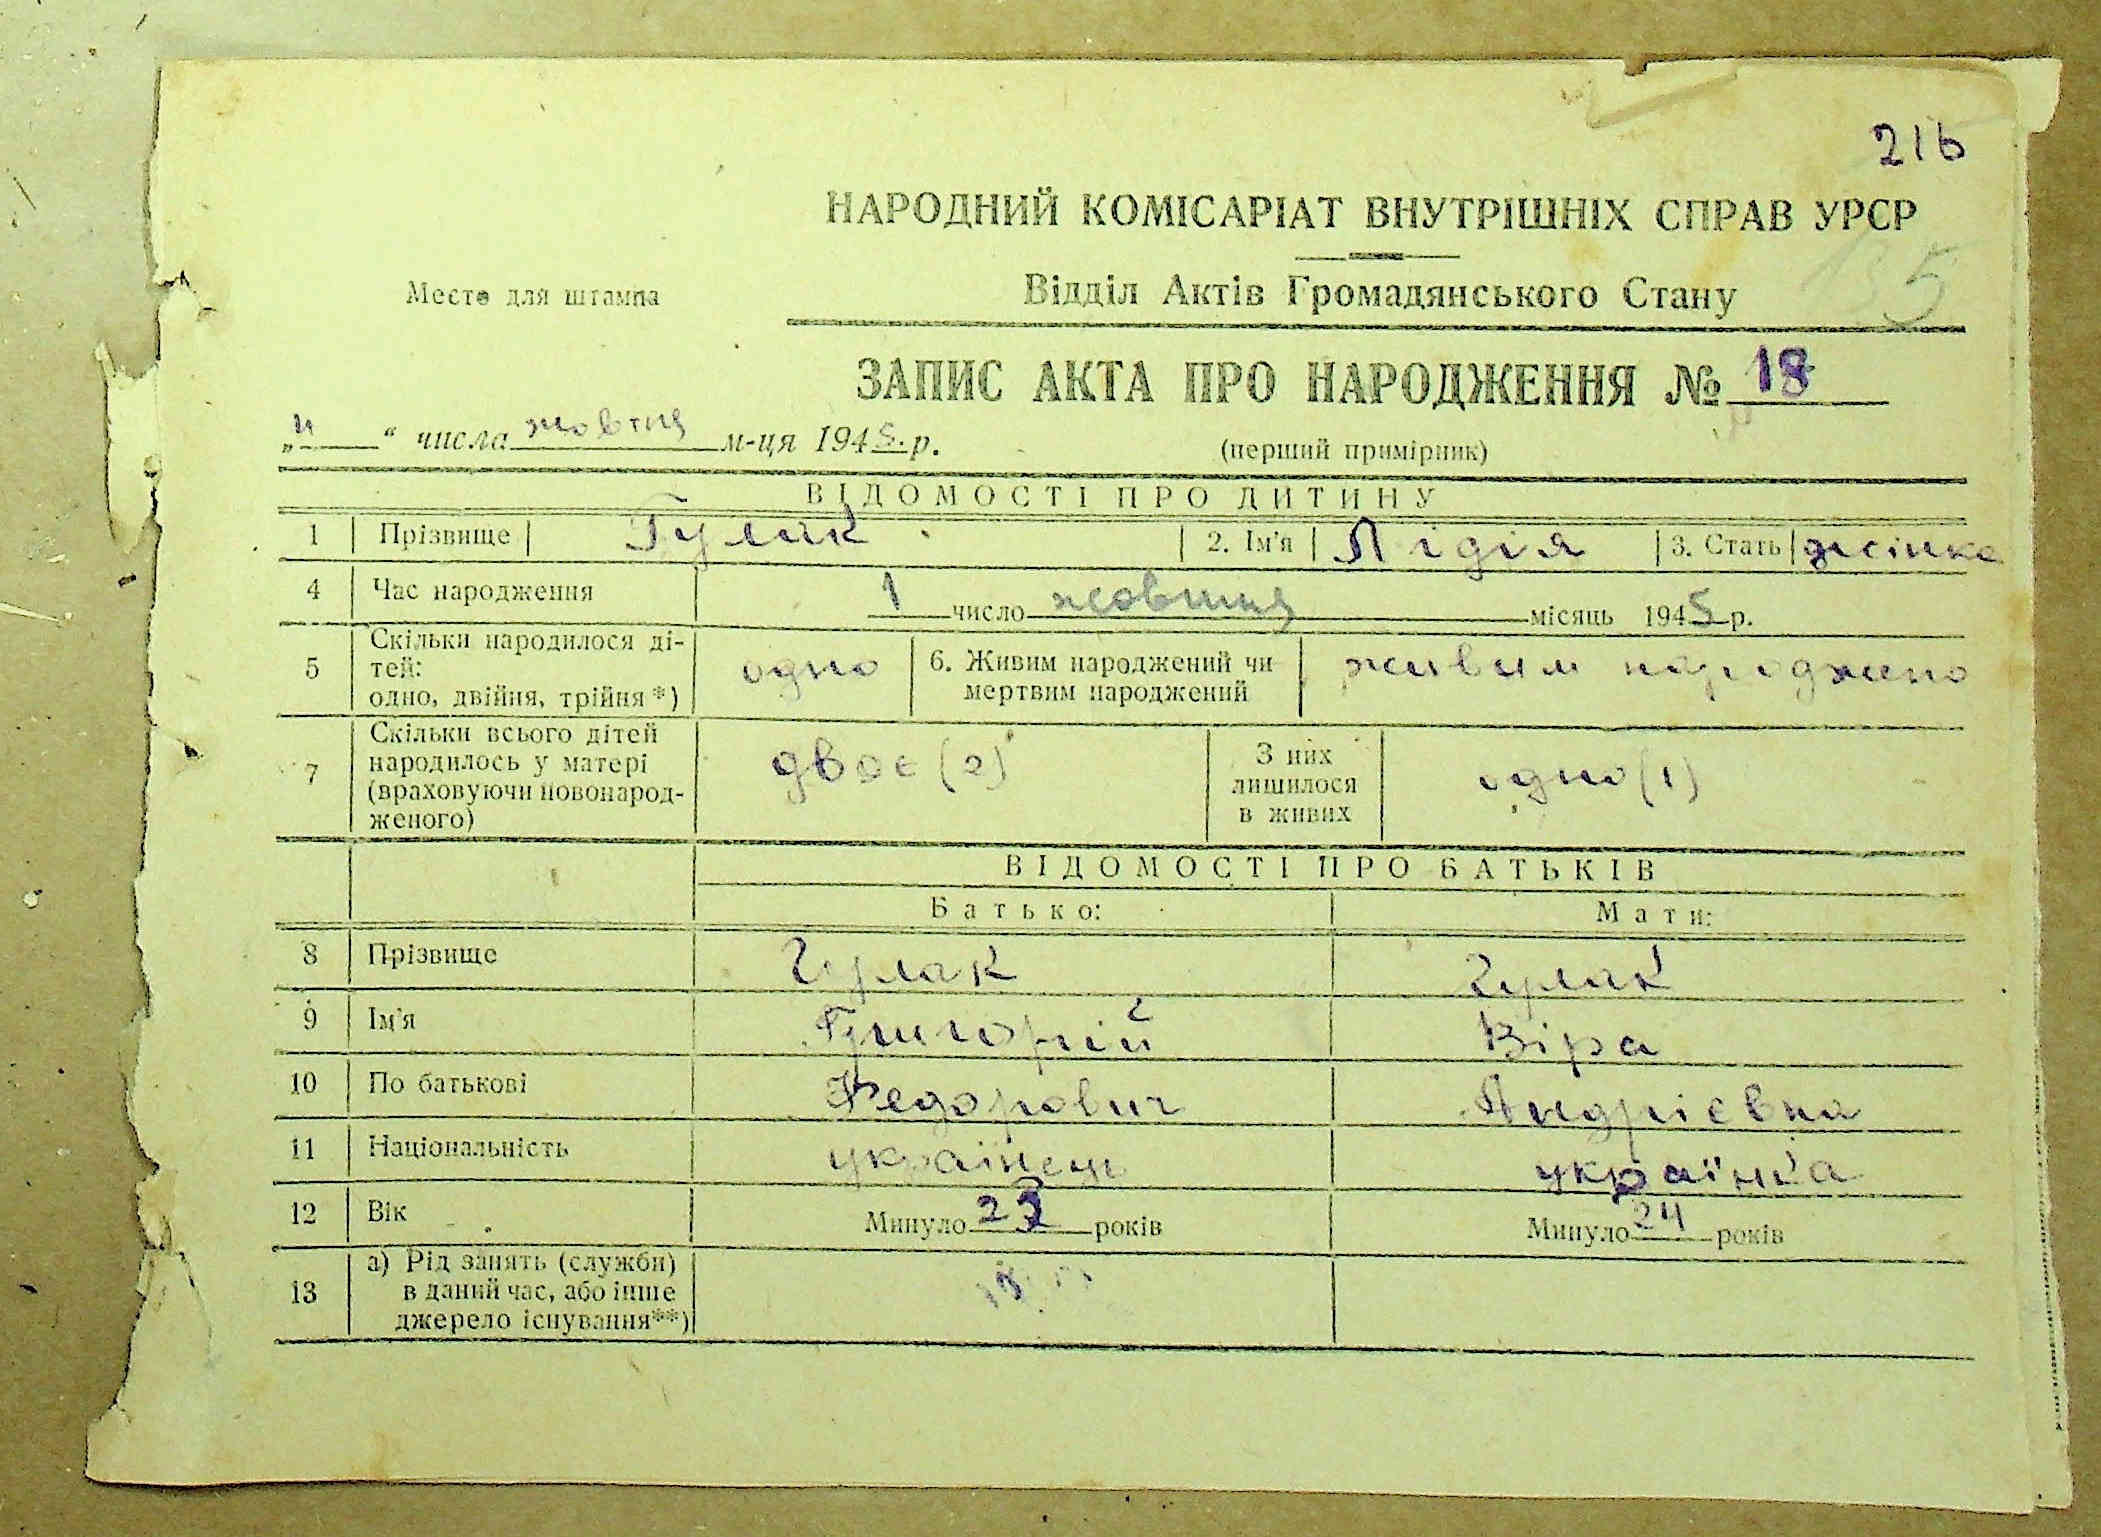 216
НАРОДНИЙ КОМІСАРІАТ ВНУТРІШНІХ СПРАВ УРСР
Место для штампа
Відділ Актів Громадянського Стану
5
ЗАПИС АКТА ПРО НАРОДЖЕННЯ № 18
„ “ числа жовтня м-ця 1945 р.
(перший примірник)
ВІДОМОСТІ ПРО ДИТИНУ
1 Прізвище Гулак 2. Ім'я Лідія 3. Стать жінка
4 Час народження 1 число жовтня місяць 1945 р.
5 Скільки народилося ді-
тей:
одно, двійня, трійня *) одно 6. Живим народжений чи
мертвим народжений живим народжено
7 Скільки всього дітей
народилось у матері
(враховуючи новонарод-
женого) двоє (2) З них
лишилося
в живих одно (1)
ВІДОМОСТІ ПРО БАТЬКІВ
Батько: Мати:
8 Прізвище Гулак Гулак
9 Ім'я Григорій Віра
10 По батькові Федорович Андрієвна
11 Національність українець українка
12 Вік Минуло років Минуло 24 років
13 а) Рід занять (служби)
в даний час, або інше
джерело існування**)